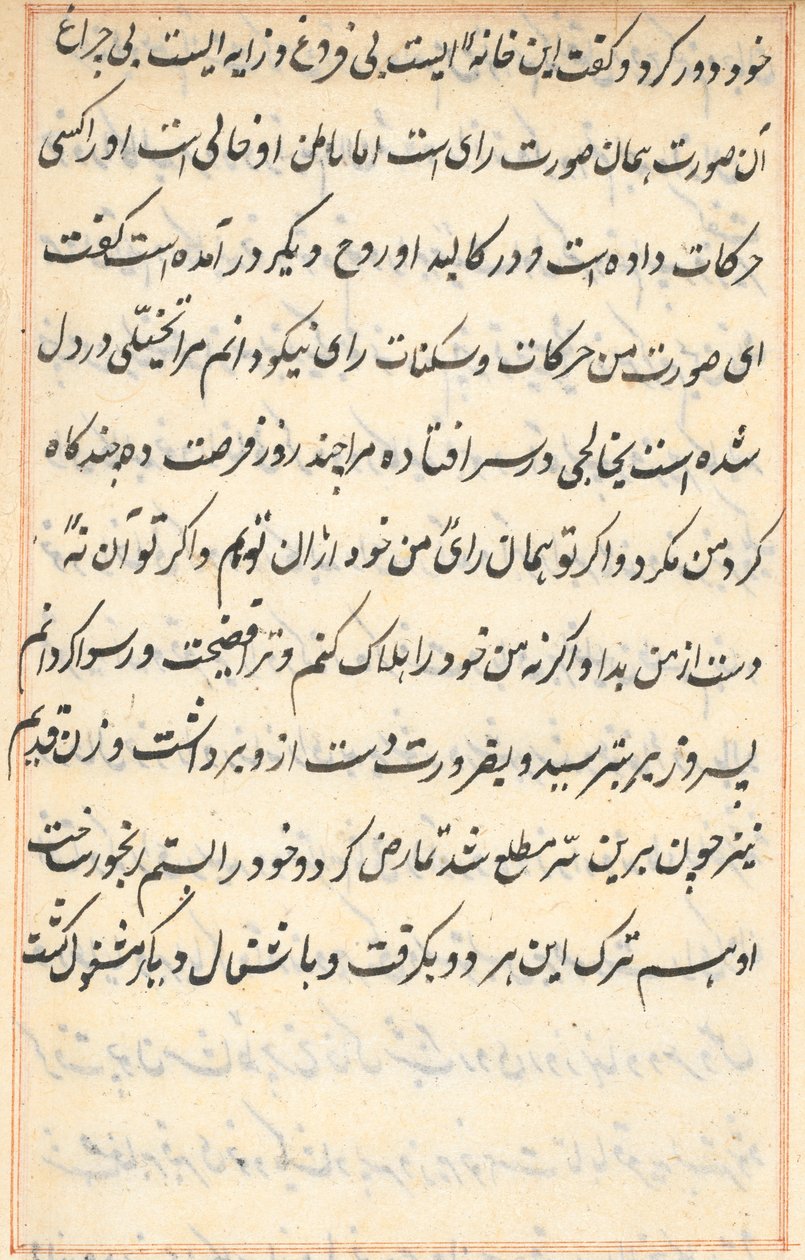 خود دور کرد و کفت این خانهٔ الیست بی فروغ و زایه الیست بی چراغ
آن صورت همان صورت رای است اما باطن او خالی است او را کسی
حرکات داده است و در کالبد او روح دیکر در آمده است کفت
ای صورت من حرکات و سکنات رای نیکو دانم مرا تخیّلی در دل
شده است یخالجی در سر افتاده مرا چند روز فرصت ده چند کاه
کرد من مکرد و اکر تو همان رایٔ من خود ازان توئم و اکر تو آن نهٔ
دست از من بدا و اکر نه من خود را هلاک کنم و ترا فضیحت و رسوا کردانم
پسر وزیر بترسید و بضرورت دست ازو برداشت و زن قدیم
نیز چون برین سّر مطلع شد تمارض کرد و خود را بستم رنجور ساخت
او هم ترک این هر دو بکرفت و باشتغال دیکر مشغول کشت